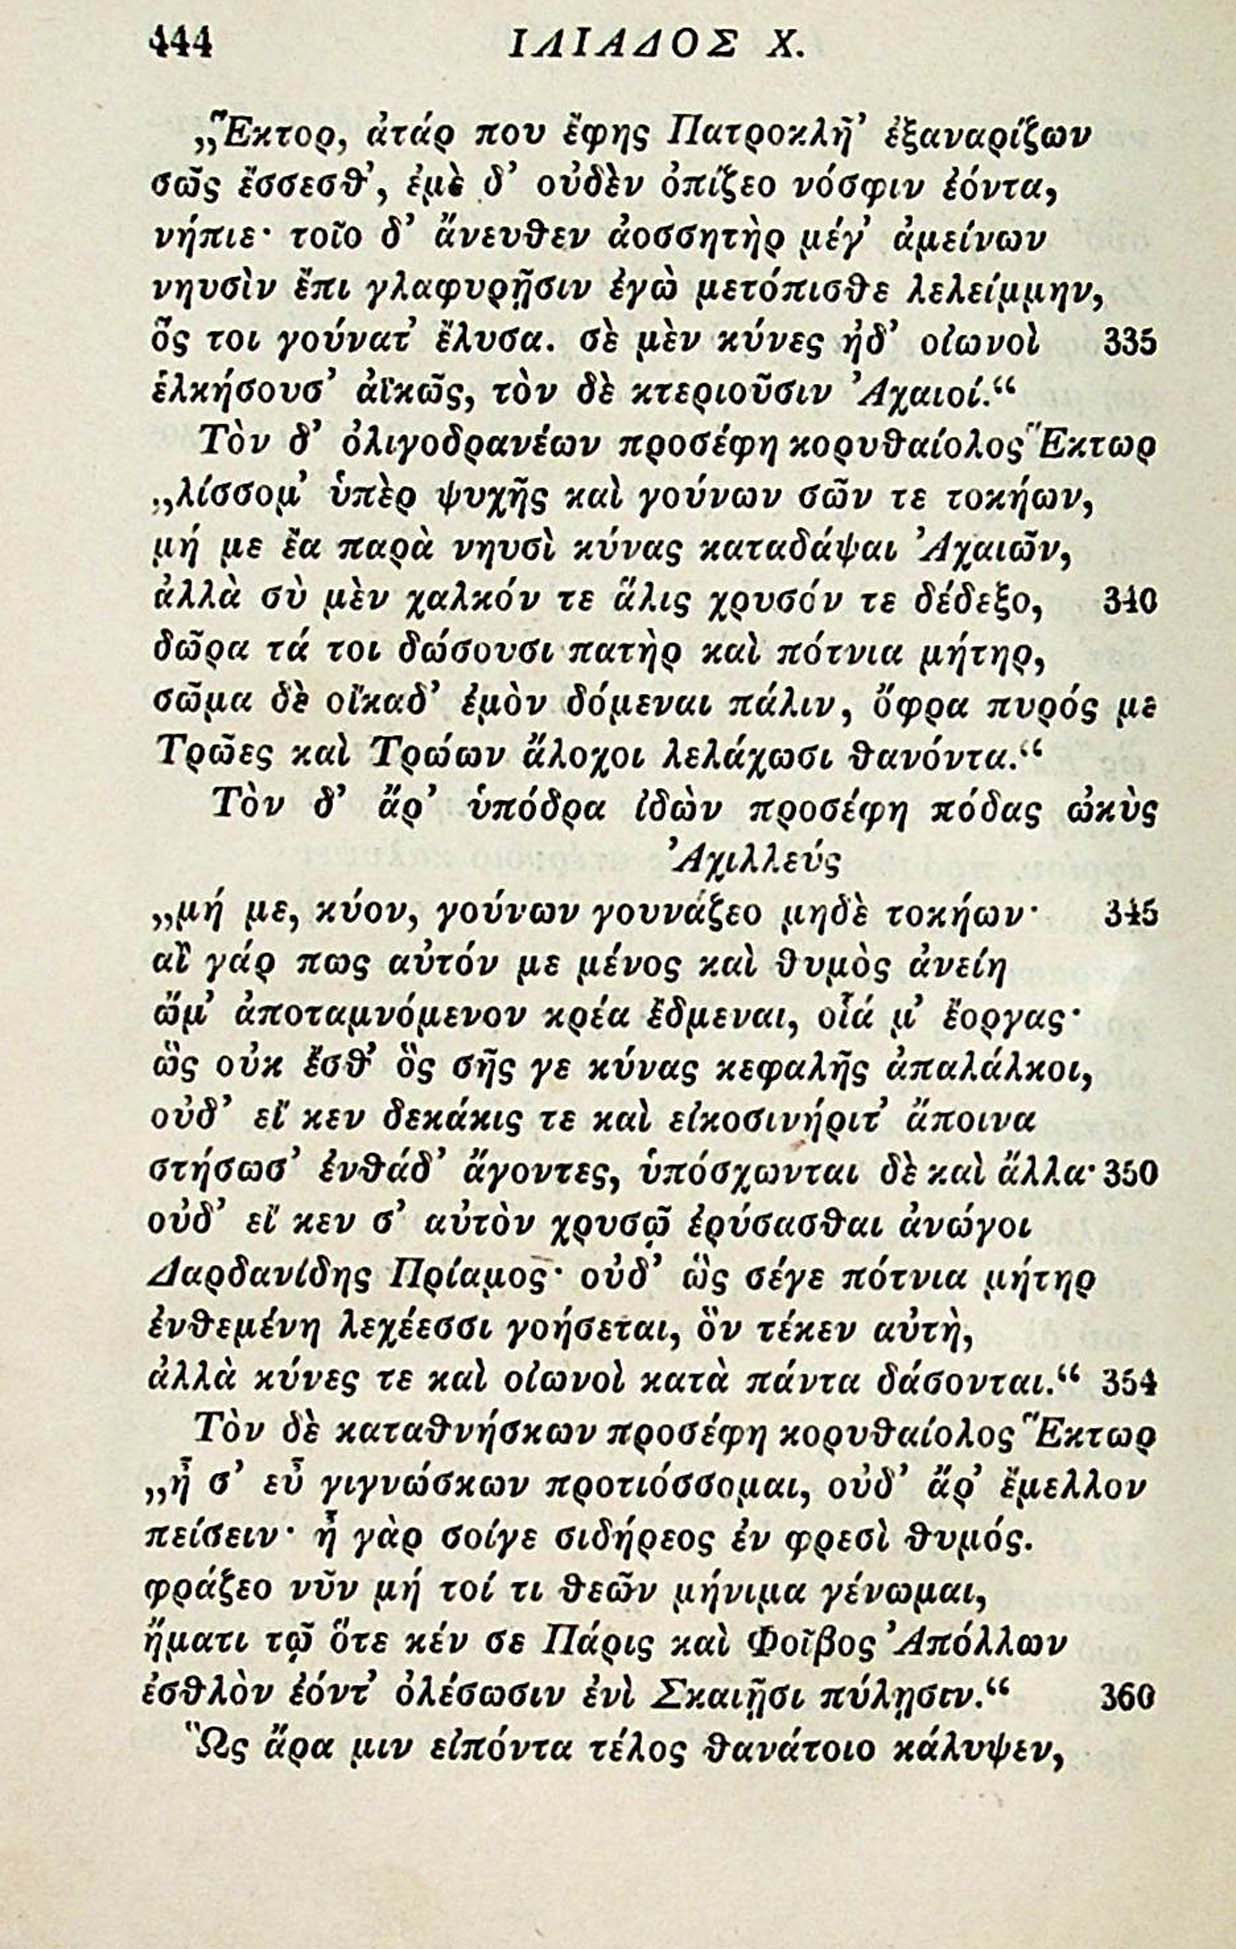 444 ΙΛΙΑΔΟΣ Χ.
„Ἕκτορ, ἀτάρ που ἔφης Πατροκλῆ’ ἐξαναρίζων
σῶς ἔσσεσθ’, ἐμὲ δ’ οὐδὲν ὀπίζεο νόσφιν ἐόντα,
νήπιε· τοῖο δ’ ἄνευθεν ἀοσσητὴρ μέγ’ ἀμείνων
νηυσὶν ἔπι γλαφυρῇσιν ἐγὼ μετόπισθε λελείμμην,
ὅς τοι γούνατ’ ἔλυσα. σὲ μὲν κύνες ἠδ’ οἰωνοὶ 335
ἑλκήσουσ’ ἀϊκῶς, τὸν δὲ κτεριοῦσιν Ἀχαιοί.“
Τὸν δ’ ὀλιγοδρανέων προσέφη κορυθαίολος Ἕκτωρ
„λίσσομ’ ὑπὲρ ψυχῆς καὶ γούνων σῶν τε τοκήων,
μή με ἔα παρὰ νηυσὶ κύνας καταδάψαι Ἀχαιῶν,
ἀλλὰ σὺ μὲν χαλκόν τε ἅλις χρυσόν τε δέδεξο, 340
δῶρα τά τοι δώσουσι πατὴρ καὶ πότνια μήτηρ,
σῶμα δὲ οἴκαδ’ ἐμὸν δόμεναι πάλιν, ὄφρα πυρός με
Τρῶες καὶ Τρώων ἄλοχοι λελάχωσι θανόντα.“
Τὸν δ’ ἄρ’ ὑπόδρα ἰδὼν προσέφη πόδας ὠκὺς
Ἀχιλλεύς
„μή με, κύον, γούνων γουνάζεο μηδὲ τοκήων· 345
αἲ γάρ πως αὐτόν με μένος καὶ θυμὸς ἀνείη
ὤμ’ ἀποταμνόμενον κρέα ἔδμεναι, οἷά μ’ ἔοργας·
ὣς οὐκ ἔσθ’ ὃς σῆς γε κύνας κεφαλῆς ἀπαλάλκοι,
οὐδ’ εἴ κεν δεκάκις τε καὶ εἰκοσινήριτ’ ἄποινα
στήσωσ’ ἐνθάδ’ ἄγοντες, ὑπόσχωνται δὲ καὶ ἄλλα· 350
οὐδ’ εἴ κεν σ’ αὐτὸν χρυσῷ ἐρύσασθαι ἀνώγοι
Δαρδανίδης Πρίαμος· οὐδ’ ὣς σέγε πότνια μήτηρ
ἐνθεμένη λεχέεσσι γοήσεται, ὃν τέκεν αὐτὴ,
ἀλλὰ κύνες τε καὶ οἰωνοὶ κατὰ πάντα δάσονται.“ 354
Τὸν δὲ καταθνήσκων προσέφη κορυθαίολος Ἕκτωρ
„ἦ σ’ εὖ γιγνώσκων προτιόσσομαι, οὐδ’ ἄρ’ ἔμελλον
πείσειν· ἦ γὰρ σοίγε σιδήρεος ἐν φρεσὶ θυμός.
φράζεο νῦν μή τοί τι θεῶν μήνιμα γένωμαι,
ἤματι τῷ ὅτε κέν σε Πάρις καὶ Φοῖβος Ἀπόλλων
ἐσθλὸν ἐόντ’ ὀλέσωσιν ἐνὶ Σκαιῇσι πύλῃσιν.“ 360
Ὣς ἄρα μιν εἰπόντα τέλος θανάτοιο κάλυψεν,